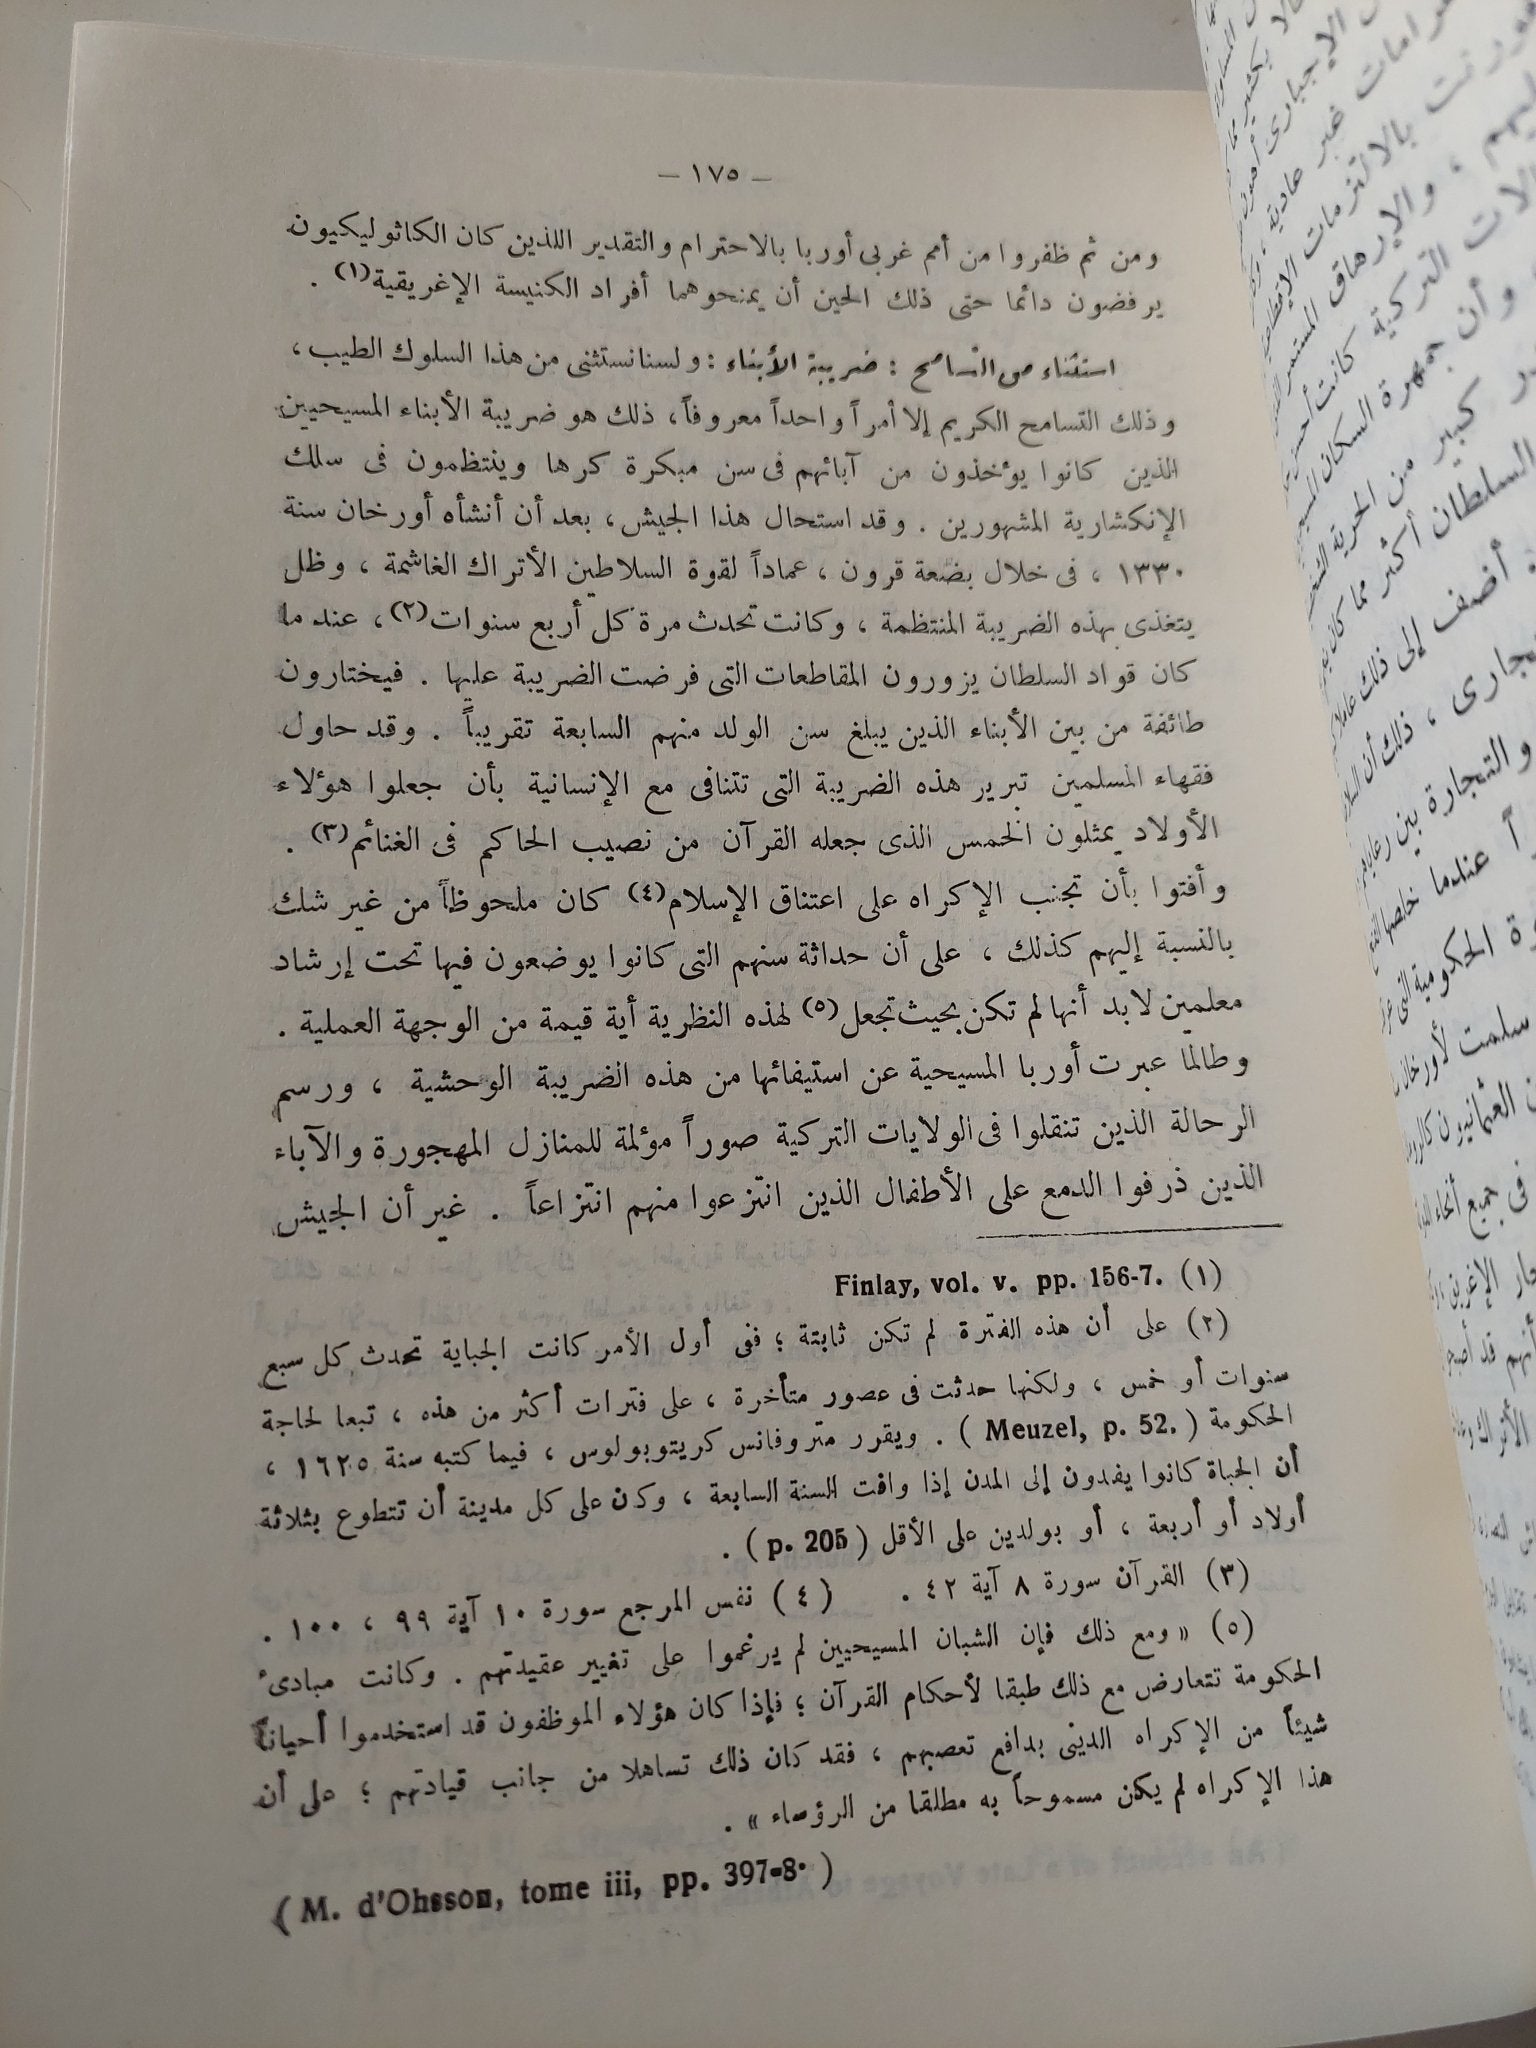 — ١٧٥ —
ومن ثم ظفروا من أمم غربى أوربا بالاحترام والتقدير اللذين كان الكاثوليكيون
يرفضون دائما حتى ذلك الحين أن يمنحوهما أفراد الكنيسة الإغريقية(١) .
استثناء من التسامح : ضريبة الأبناء : ولسنا نستثنى من هذا السلوك الطيب ،
وذلك التسامح الكريم إلا أمراً واحداً معروفاً ، ذلك هو ضريبة الأبناء المسيحيين
الذين كانوا يؤخذون من آبائهم فى سن مبكرة كرها وينتظمون فى سلك
الإنكشارية المشهورين . وقد استحال هذا الجيش ، بعد أن أنشأه أورخان سنة
١٣٣٠ ، فى خلال بضعة قرون ، عماداً لقوة السلاطين الأتراك الغاشمة ، وظل
يتغذى بهذه الضريبة المنتظمة ، وكانت تحدث مرة كل أربع سنوات(٢) ، عند ما
كان قواد السلطان يزورون المقاطعات التى فرضت الضريبة عليها . فيختارون
طائفة من بين الأبناء الذين يبلغ سن الولد منهم السابعة تقريباً . وقد حاول
فقهاء المسلمين تبرير هذه الضريبة التى تتنافى مع الإنسانية بأن جعلوا هؤلاء
الأولاد يمثلون الخمس الذى جعله القرآن من نصيب الحاكم فى الغنائم(٣) .
وأفتوا بأن تجنب الإكراه على اعتناق الإسلام(٤) كان ملحوظاً من غير شك
بالنسبة إليهم كذلك ، على أن حداثة سنهم التى كانوا يوضعون فيها تحت إرشاد
معلمين لابد أنها لم تكن بحيث تجعل(٥) لهذه النظرية أية قيمة من الوجهة العملية .
وطالما عبرت أوربا المسيحية عن استيفائها من هذه الضريبة الوحشية ، ورسم
الرحالة الذين تنقلوا فى الولايات التركية صوراً مؤلمة للمنازل المهجورة والآباء
الذين ذرفوا الدمع على الأطفال الذين انتزعوا منهم انتزاعاً . غير أن الجيش
(١) Finlay, vol. v. pp. 156-7.
(٢) على أن هذه الفترة لم تكن ثابتة ؛ ففى أول الأمر كانت الجباية تحدث كل سبع
سنوات أو خمس ، ولكنها حدثت فى عصور متأخرة ، على فترات أكثر من هذه ، تبعا لحاجة
الحكومة ( Meuzel, p. 52. ) . ويقرر متروفانس كريتوبولوس ، فيما كتبه سنة ١٦٢٥ ،
أن الجباة كانوا يفدون إلى المدن إذا وافت السنة السابعة ، وكان على كل مدينة أن تتطوع بثلاثة
أولاد أو أربعة ، أو بولدين على الأقل ( p. 205 ) .
(٣) القرآن سورة ٨ آية ٤٢ . (٤) نفس المرجع سورة ١٠ آية ٩٩ ، ١٠٠ .
(٥) « ومع ذلك فإن الشبان المسيحيين لم يرغموا على تغيير عقيدتهم . وكانت مبادىء
الحكومة تتعارض مع ذلك طبقا لأحكام القرآن ؛ فإذا كان هؤلاء الموظفون قد استخدموا أحياناً
شيئاً من الإكراه الدينى بدافع تعصبهم ، فقد كان ذلك تساهلا من جانب قيادتهم ؛ على أن
هذا الإكراه لم يكن مسموحاً به مطلقا من الرؤساء » .
( M. d'Ohsson, tome iii, pp. 397-8. )